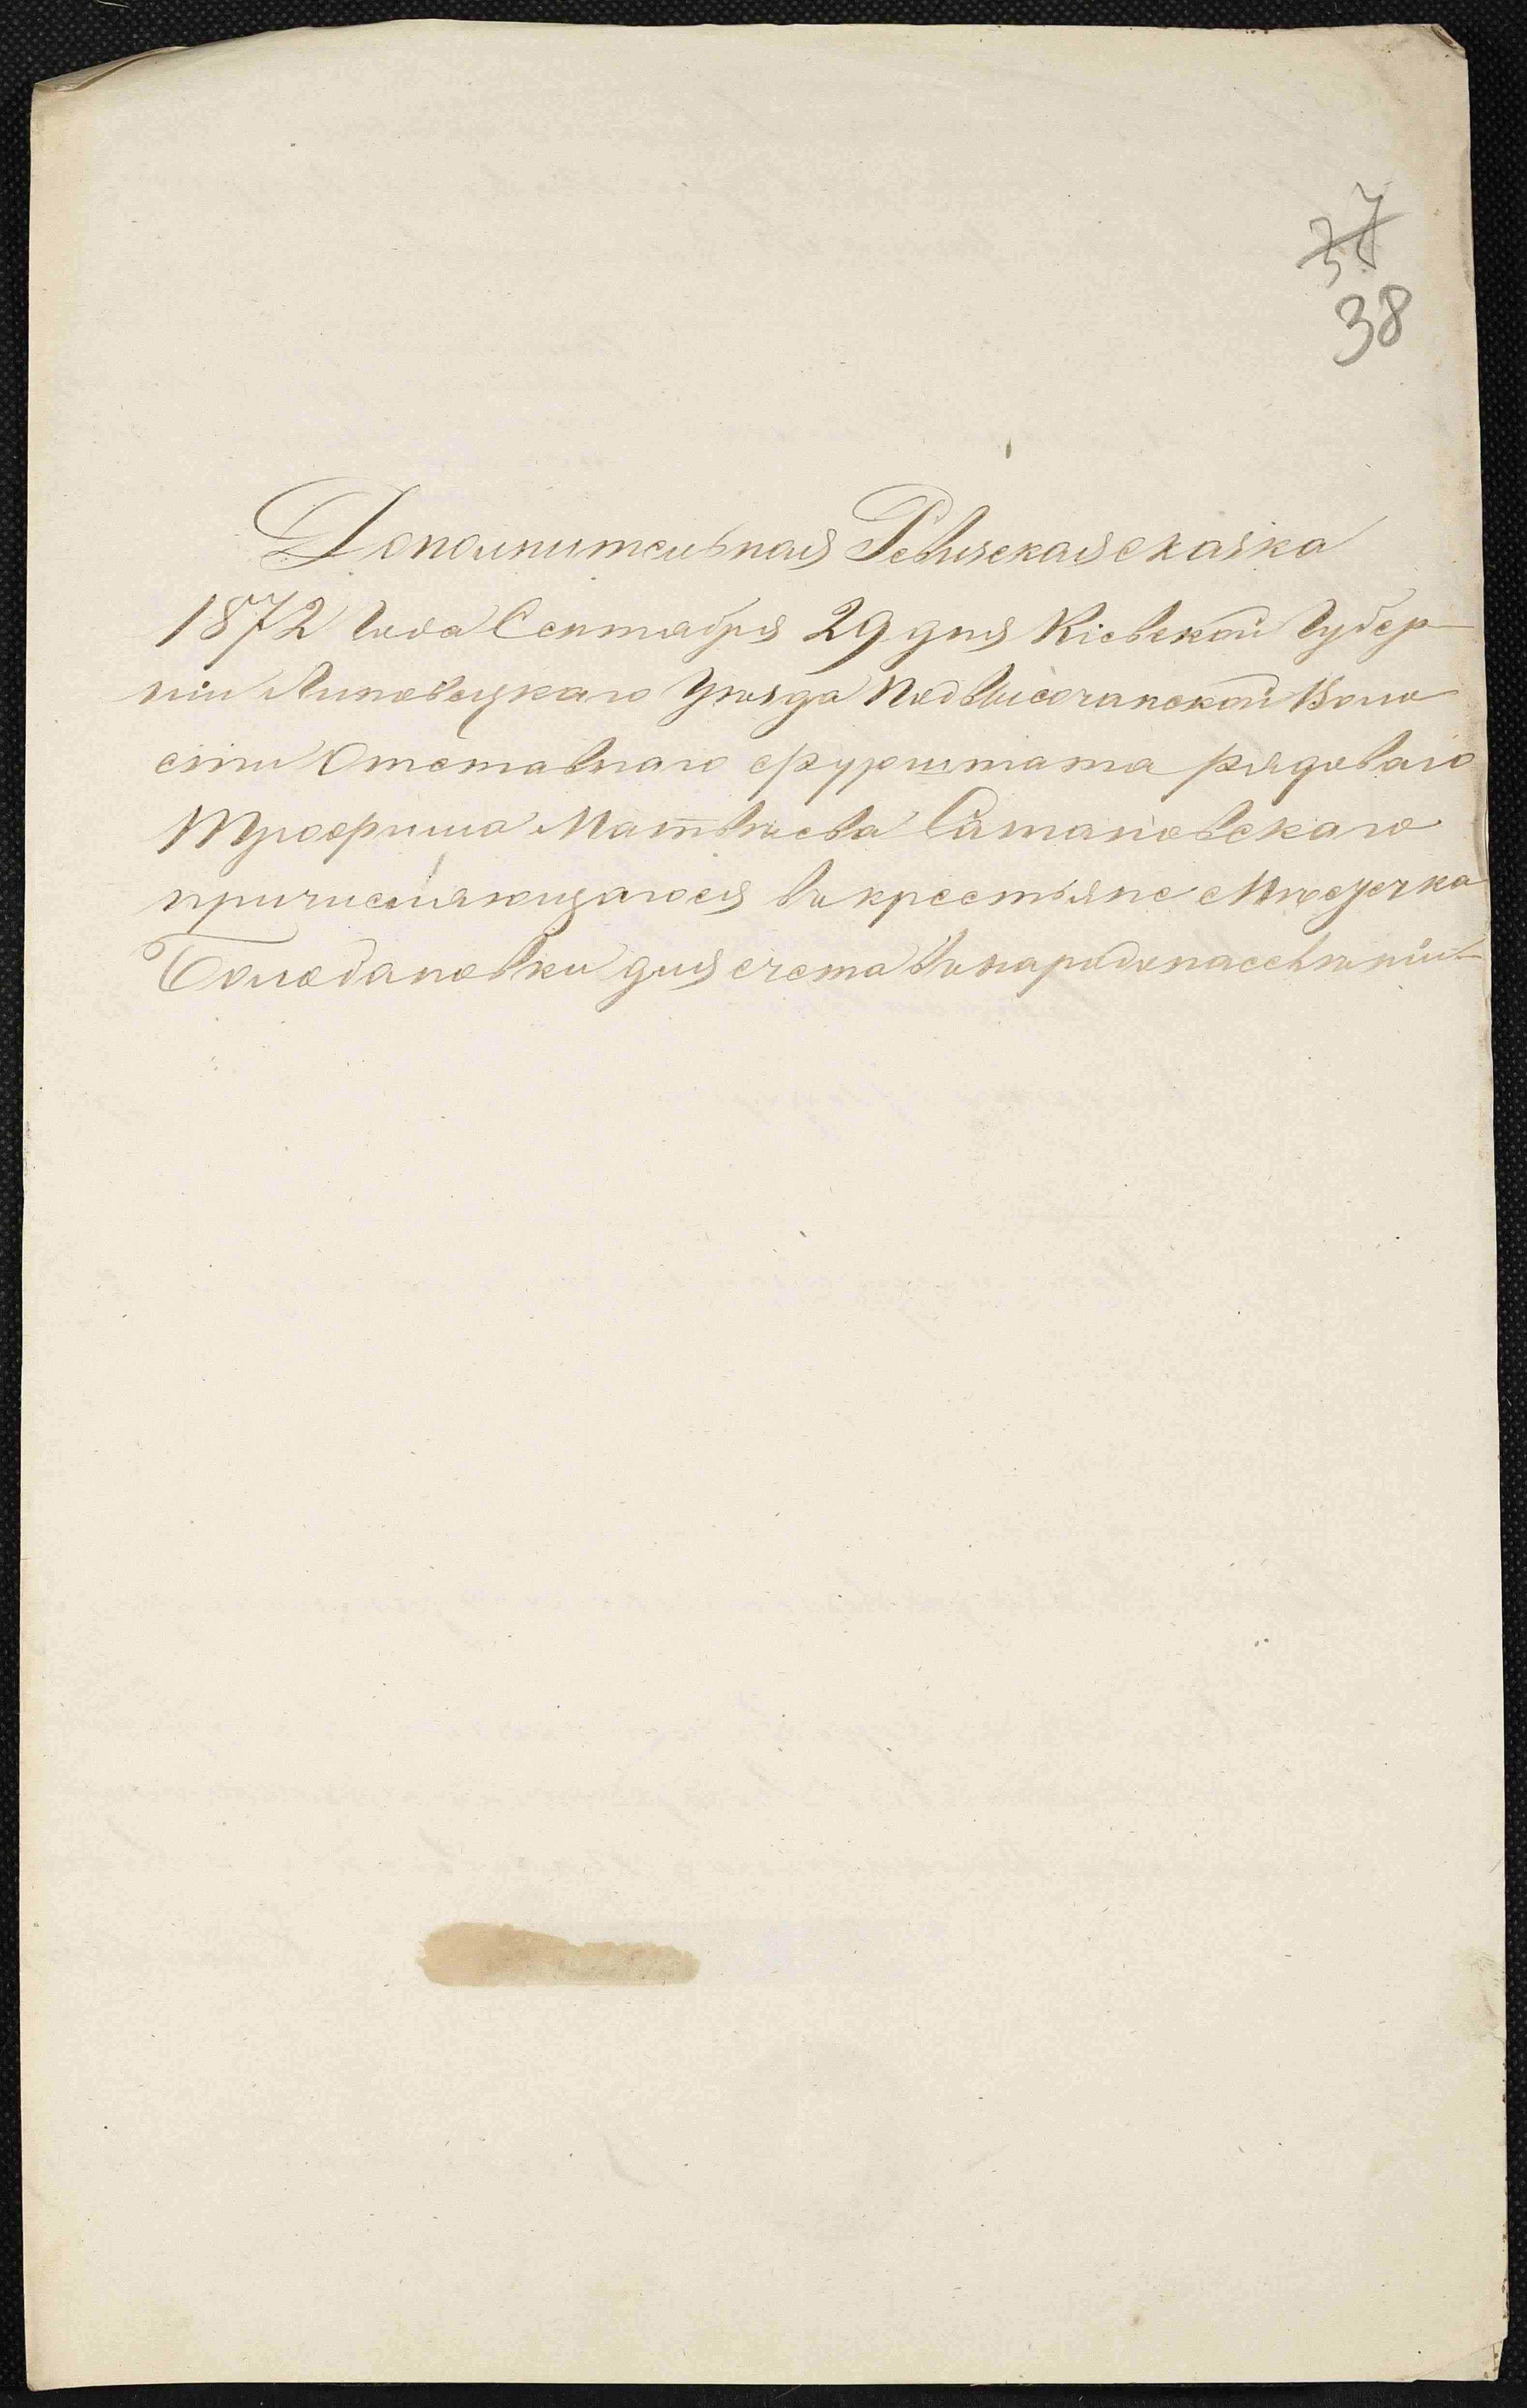 37
38
Дополнительная Ревизская сказка
1872 Года Сентября 29 дня Кіевской Губер-
ніи Липовецкаго Уѣзда Подвысочанской Воло
сти Отставнаго фурштата рядоваго
Трофима Матвѣева Сатановскаго
причисляющагося въ крестьяне Мѣстечка
для счета въ народонаселѣніи